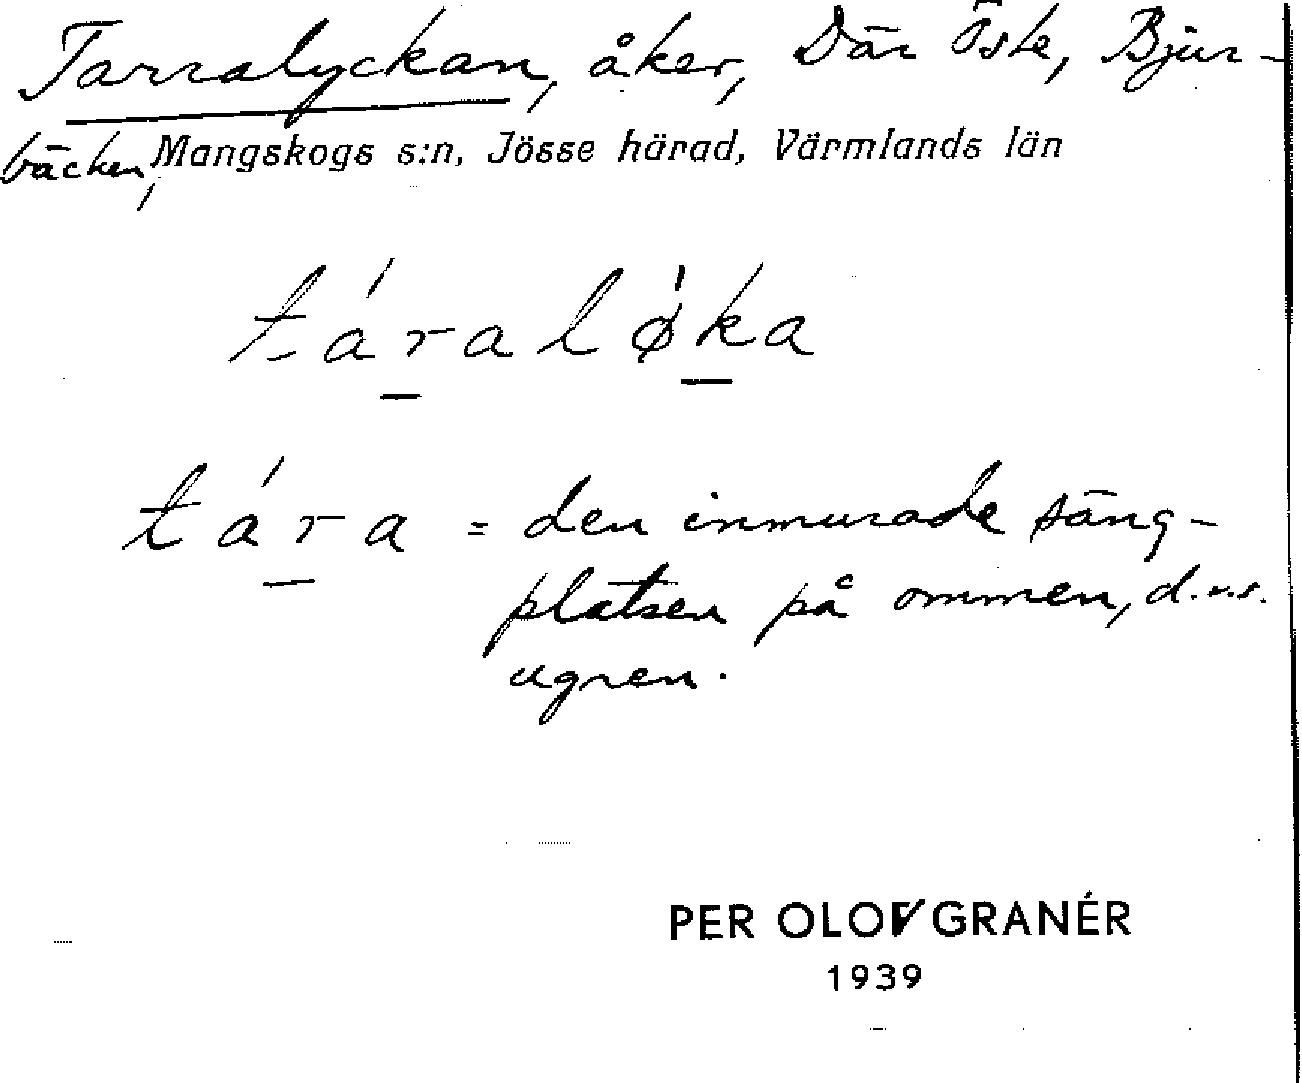 Tarralyckan, åker, Där Öste, Bjur-
bäcken, Mangskogs s:n, Jösse härad, Värmlands län
táraløka
tára = den inmurade säng-
platsen på ommen, d.v.s.
ugnen.
PER OLOV GRANÉR
1939